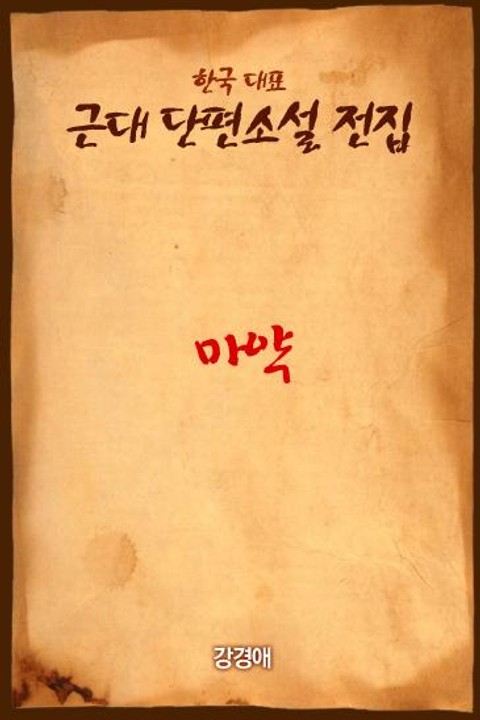 한국 대표
근대 단편소설 전집
마약
강경애